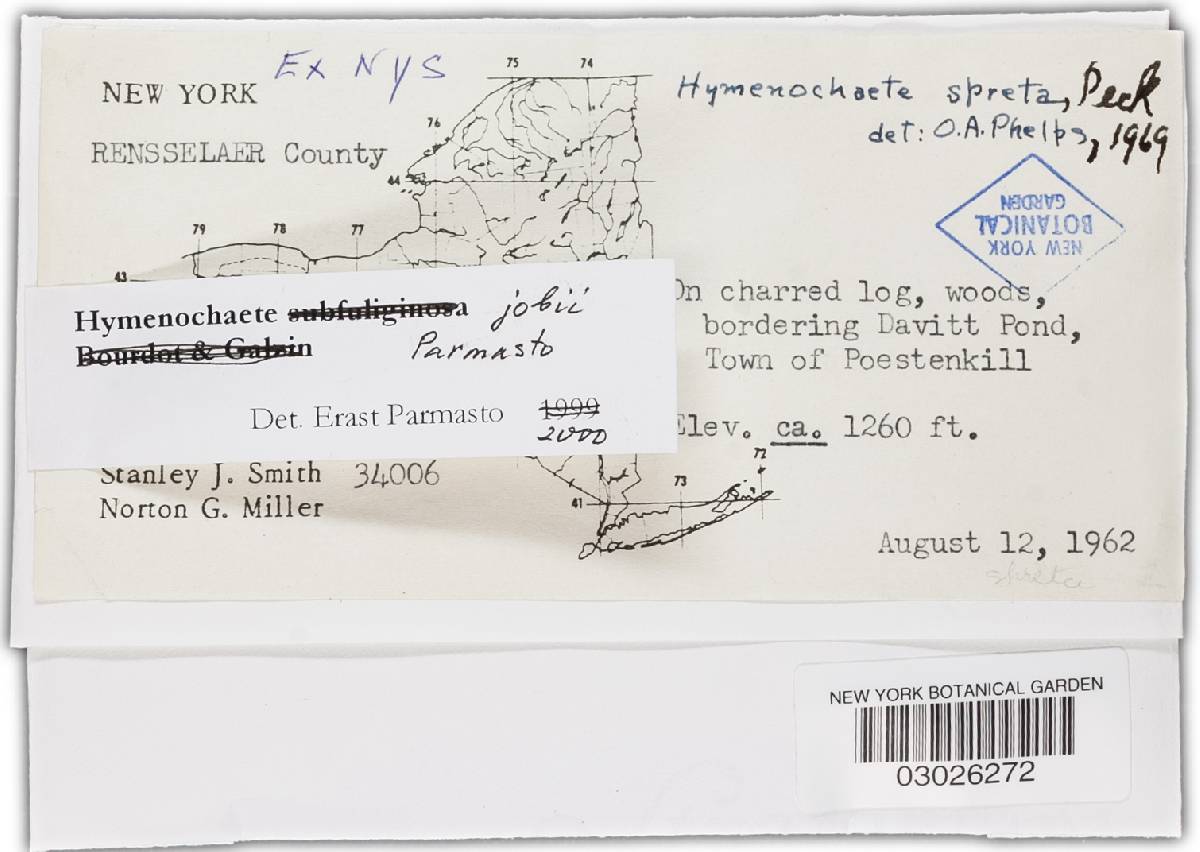 Ex NYS
NEW YORK
RENSSELAER County
75 74
76
44
79 78 77
43
Hymenochaete spreta, Peck
det: O.A. Phelps, 1969
NEW YORK
BOTANICAL
GARDEN
On charred log, woods,
bordering Davitt Pond,
Town of Poestenkill
Elev. ca. 1260 ft.
Hymenochaete subfuliginosa jobii
Bourdot & Galzin Parmasto
Det. Erast Parmasto 1999
2000
Stanley J. Smith 34006
Norton G. Miller
72
73
41
August 12, 1962
spreta
NEW YORK BOTANICAL GARDEN
03026272